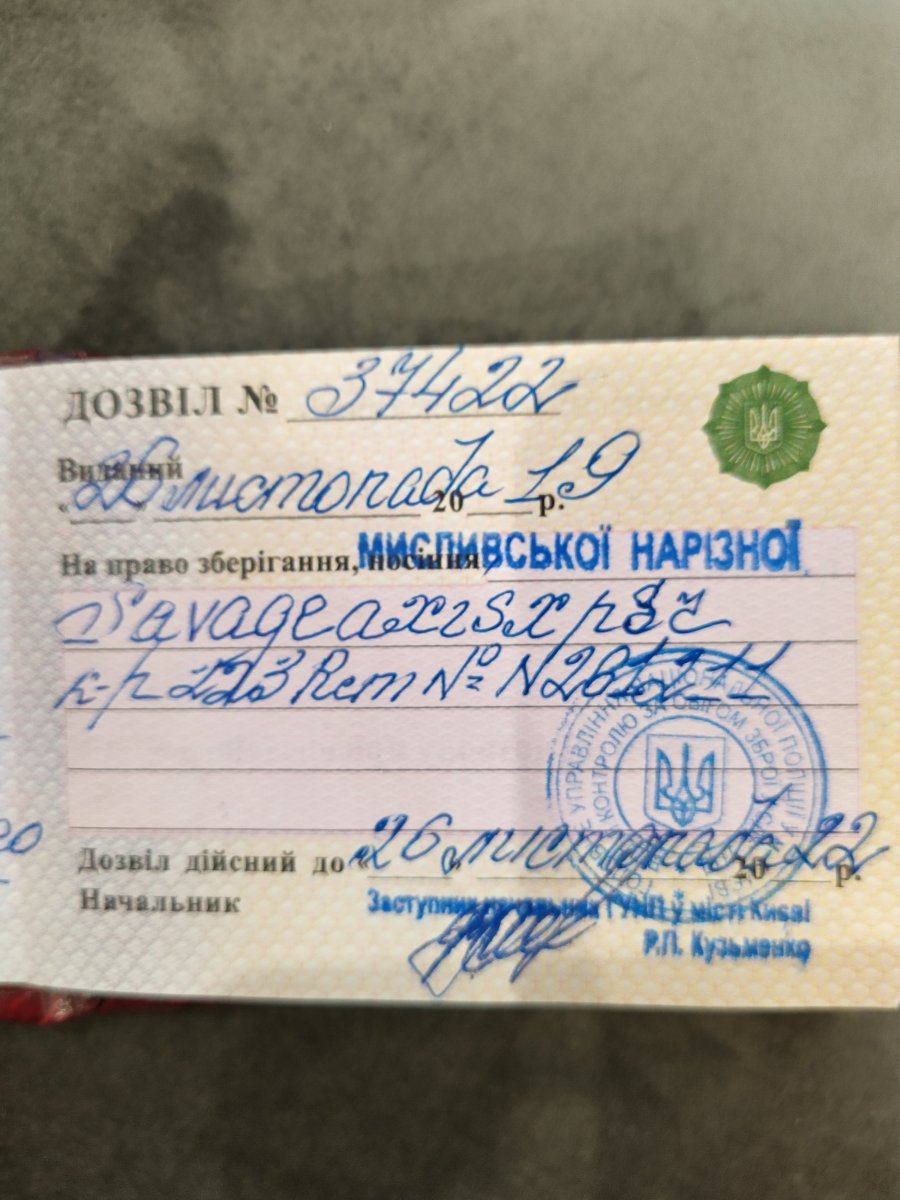 ДОЗВІЛ № 37422
Виданий
« 26 » листопада 2019 р.
На право зберігання, носіння, МИСЛИВСЬКОЇ НАРІЗНОЇ
Savage axis xp
к-р 223 Rem № N281211
УПРАВЛІННЯ НАЦІОНАЛЬНОЇ ПОЛІЦІЇ У
КОНТРОЛЮ ЗА ОБІГОМ ЗБРОЇ
Дозвіл дійсний до « 26 » листопада 2022 р.
Начальник Заступник начальника ГУНП у місті Києві
Р.П. Кузьменко